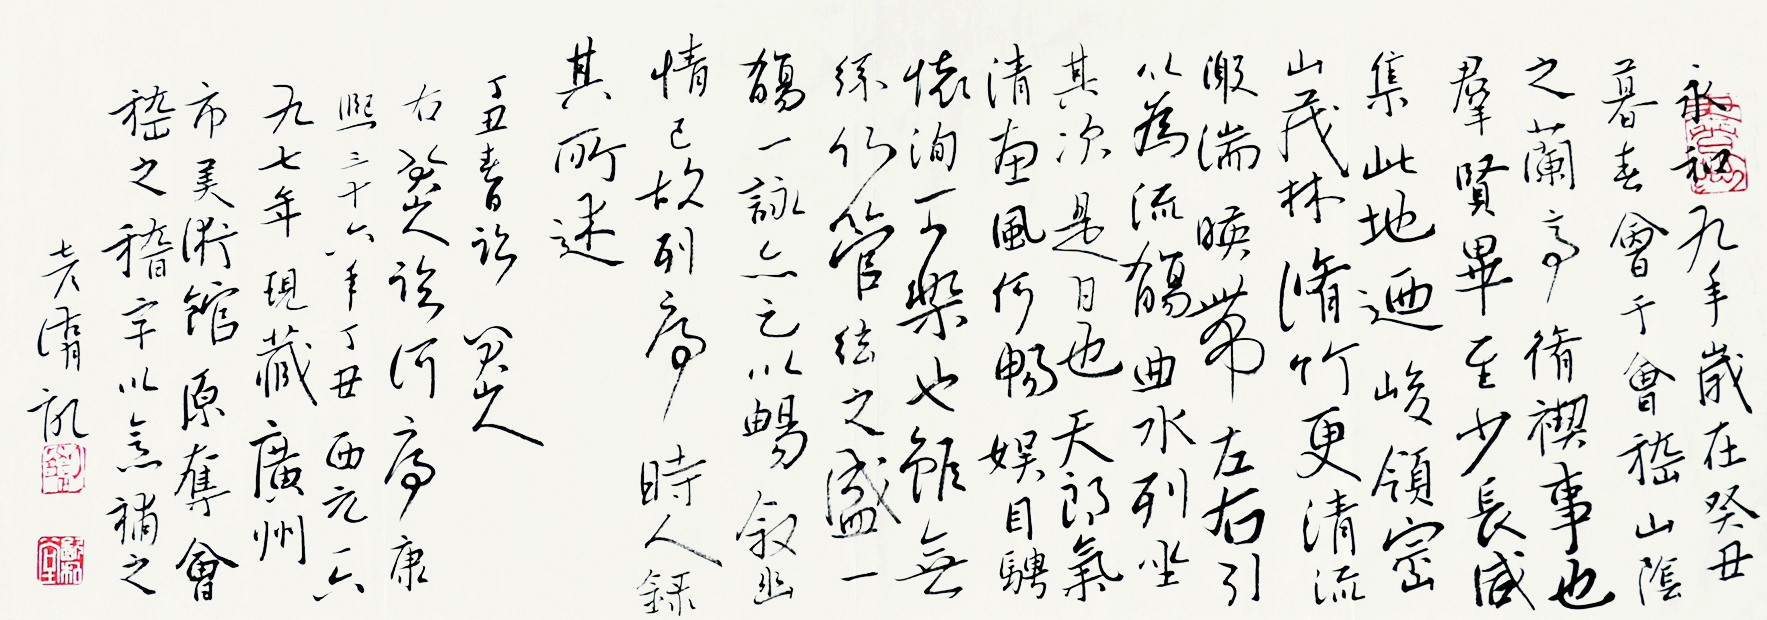 永和九年歲在癸丑
暮春會于會嵇山陰
之蘭亭脩禊事也
羣賢畢至少長咸
集此地迺峻領崇
山茂林脩竹更清流
激湍暎帶左右引
以為流觴曲水列坐
其次是日也天朗氣
清惠風何暢娛目騁
懷洵可樂也雖無
絲竹管絃之盛一
觴一詠亦足以暢叙幽
情已故列序時人錄
其所述
丁丑春日 八大山人
右八大山人臨河序康
熙三十六年丁丑西元一六
九七年現藏廣州
市美術館原奪會
嵇之稽字以意補之
老渭記